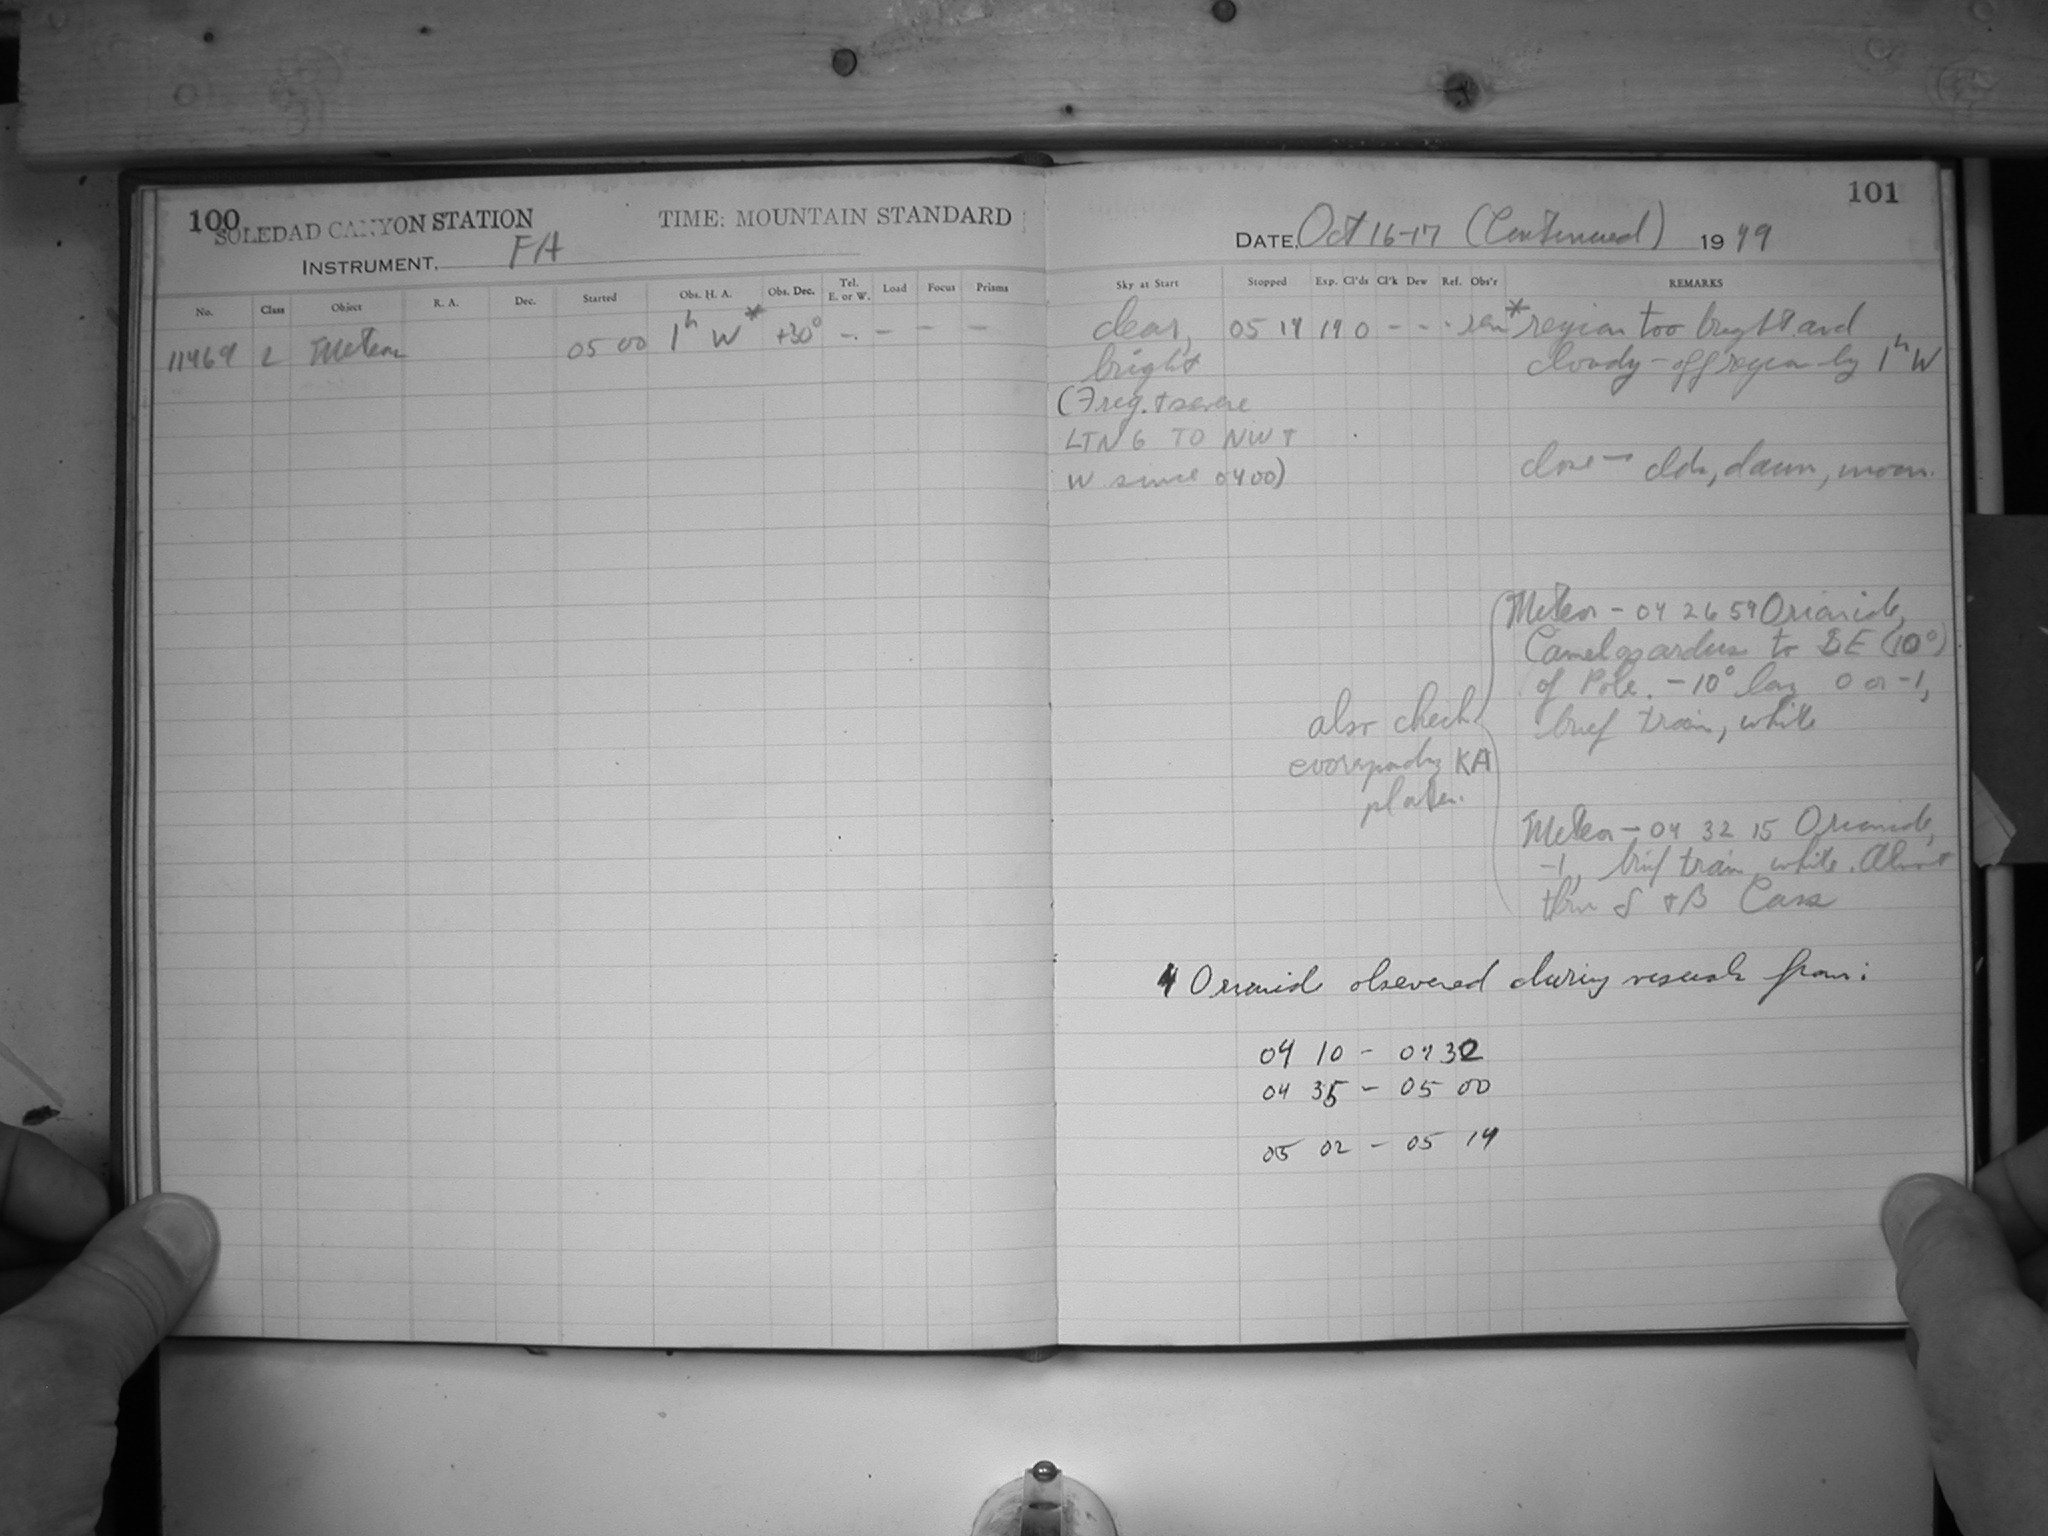 100
SOLEDAD CANYON STATION TIME: MOUNTAIN STANDARD
INSTRUMENT. FA
No. Class Object R. A. Dec. Started Obs. H. A. Obs. Dec. Tel. E. or W. Load Focus Prisms
11469 2 Meteor 05 00 1h W* +30° - - - -
101
DATE, Oct 16-17 (Continued) 1949
Sky at Start Stopped Exp. Cl'ds Cl'k Dew Ref. Obs'r REMARKS
clear, 05 14 14 0 - - - *region too bright and
bright cloudy - off region by 1h W
(Freq. + severe
LTNG TO NW +
W since 0400) close - clds, dawn, moon.
Meteor - 04 26 59 Orionid,
Camelopardus to SE (10°)
of Pole. - 10° long 0 or -1,
brief train, white
also check
KA
plates.
Meteor - 04 32 15 Orionid,
-1, brief train, white. Almost
thru δ + β Cass
4 Orionids obsevered during visuals from:
04 10 - 04 32
04 35 - 05 00
05 02 - 05 14